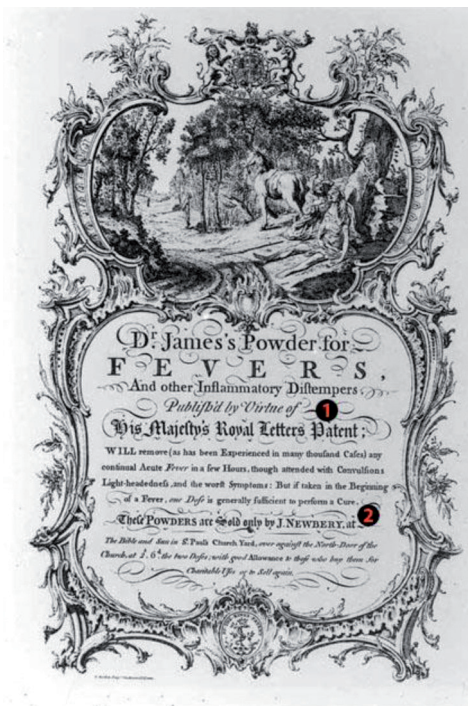 Dr. James's Powder for
FEVERS,
And other Inflammatory Distempers
Publish'd by Virtue of
1
His Majesty's Royal Letters Patent;
WILL remove (as has been Experienced in many thousand Cases) any
continual Acute Fever in a few Hours, though attended with Convulsions
Light-headedness, and the worst Symptoms: But if taken in the Beginning
of a Fever, one Dose is generally sufficient to perform a Cure.
2
These POWDERS are Sold only by J. NEWBERY, at
The Bible and Sun in St. Pauls Church Yard, over against the North-Door of the
Church, at 2s. 6d. the two Doses; with good Allowance to those who buy them for
Charitable Uses or to Sell again.